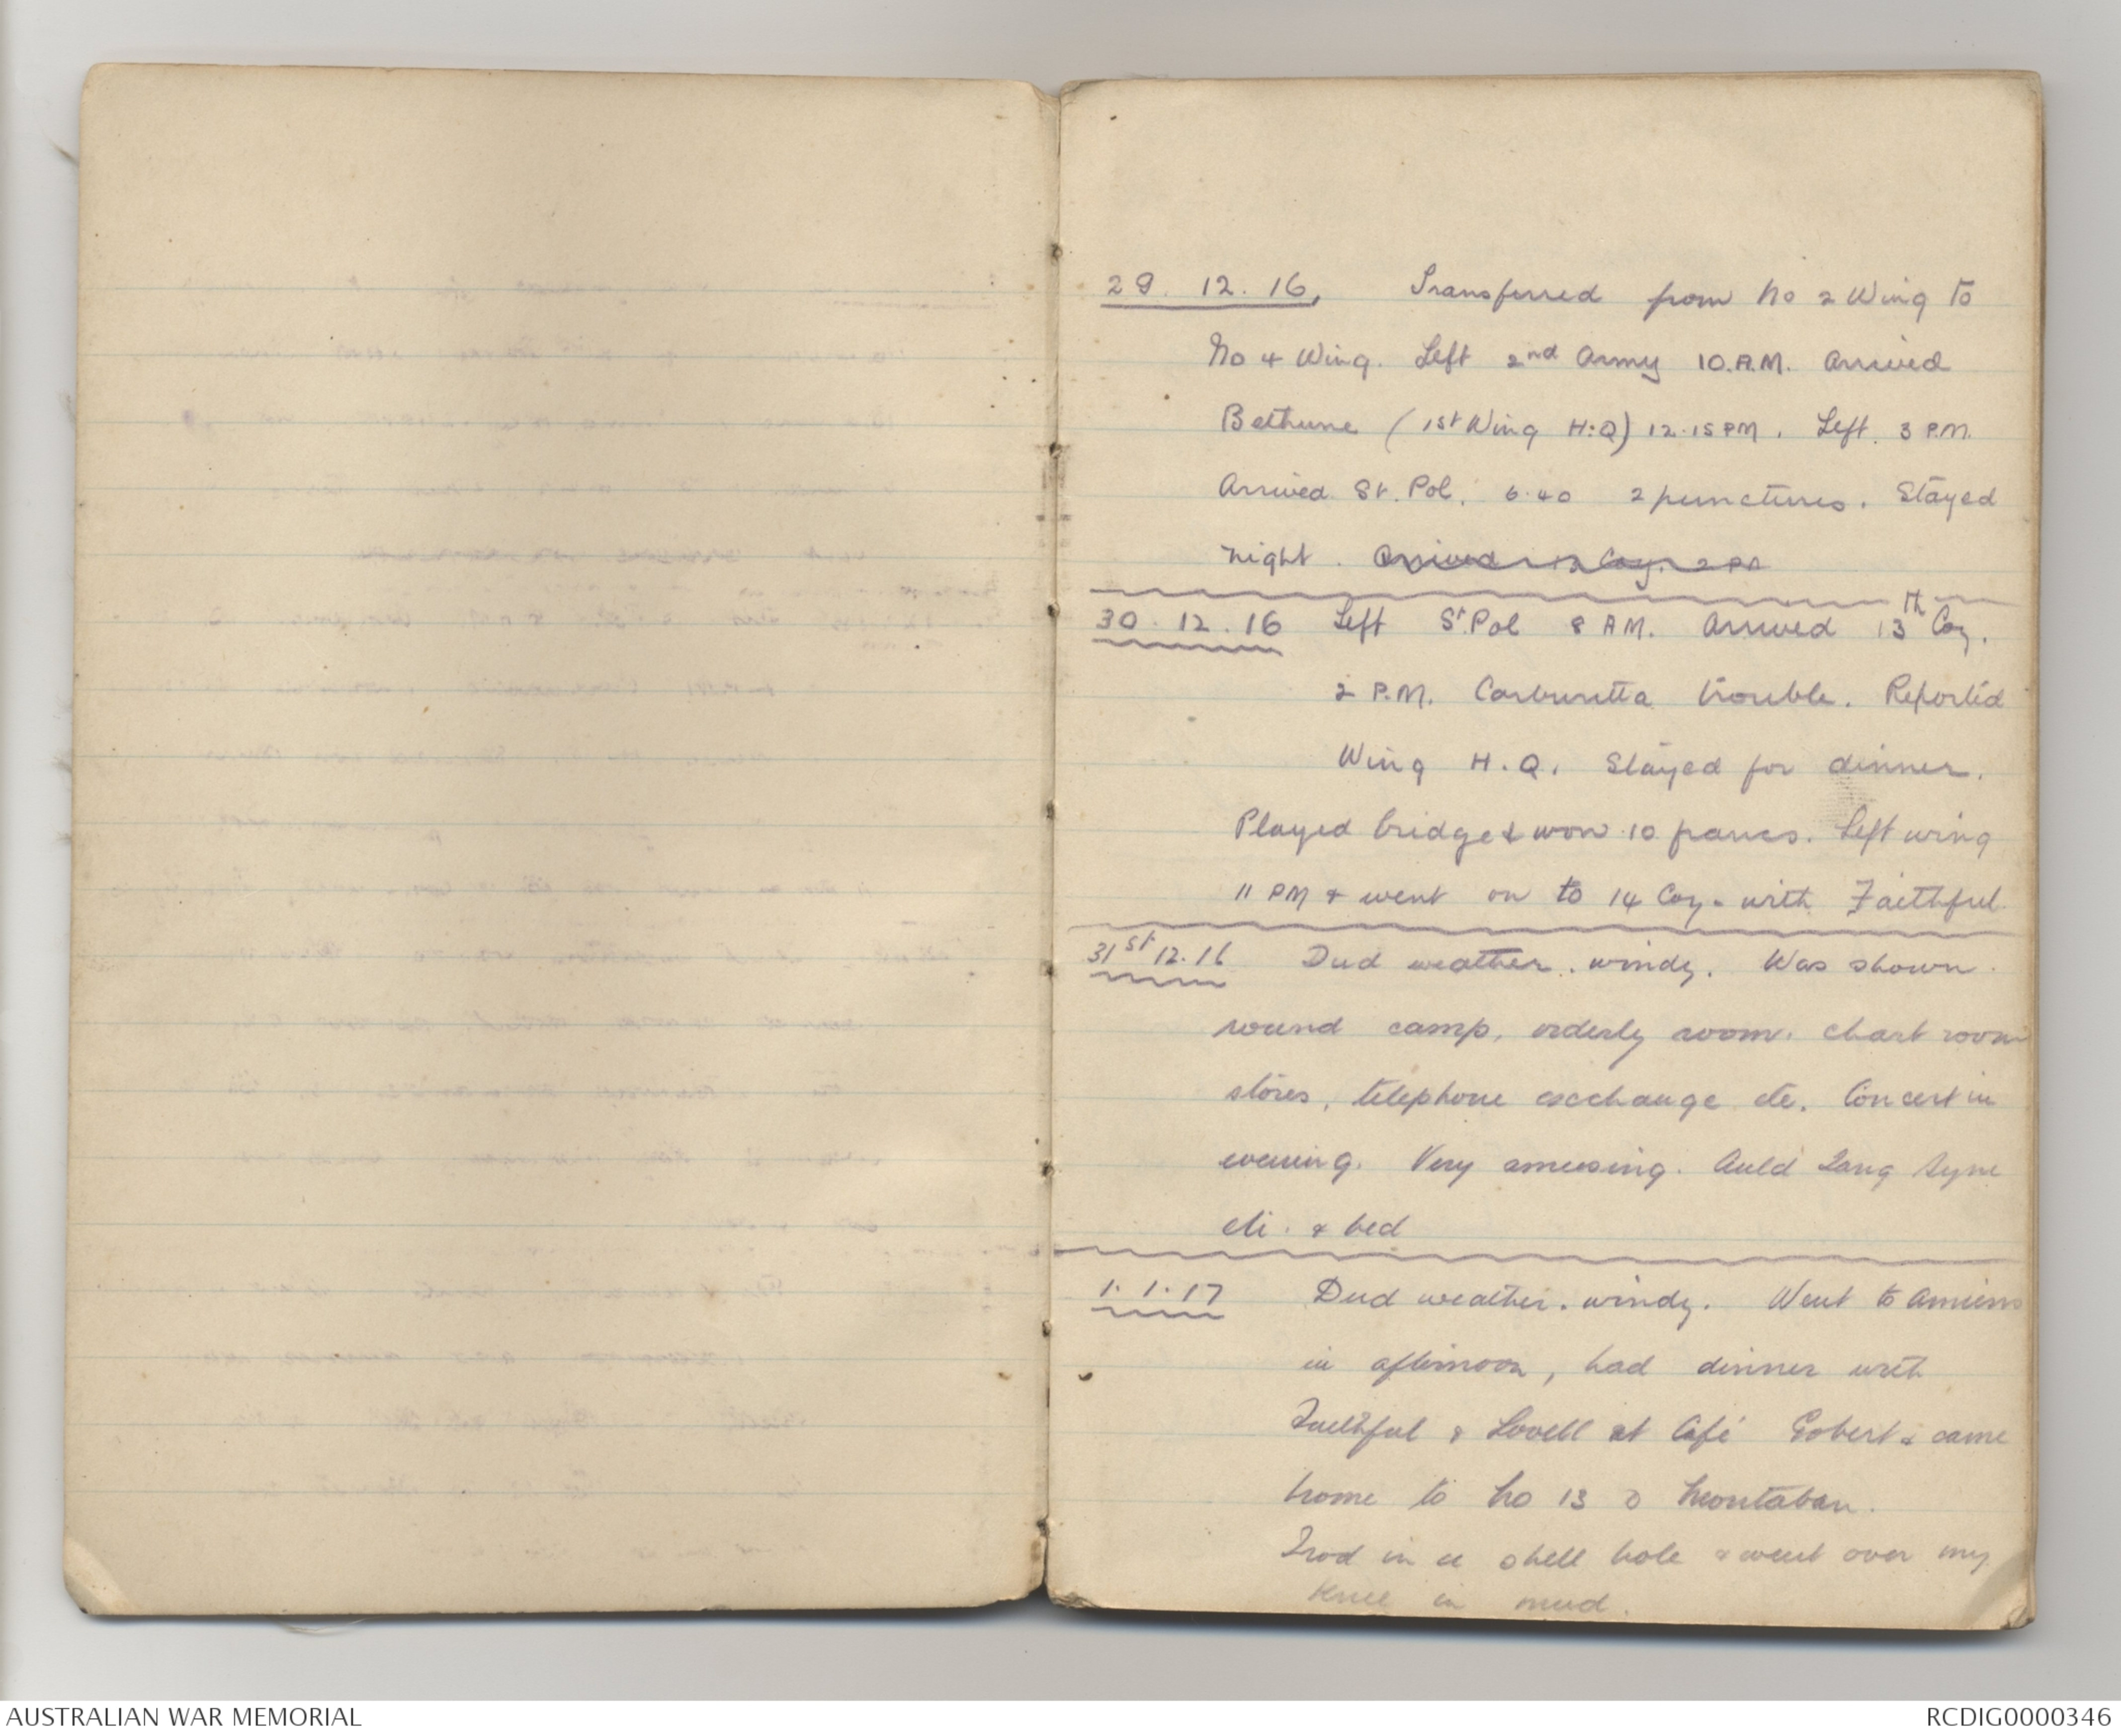 29. 12. 16, Transferred from No 2 Wing to
No 4 Wing. Left 2nd Army 10.A.M. Arrived
Bethune (1st Wing H:Q) 12.15 PM. Left 3 P.M.
Arrived St. Pol. 6.40 2 punctures. Stayed
night. Arrived 13 Coy. 2 PM
30. 12. 16 Left St. Pol 8 AM. Arrived 13th Coy.
2 P.M. Carburetta trouble. Reported
Wing H.Q. Stayed for dinner.
Played bridge & won 10 francs. Left wing
11 PM & went on to 14 Coy. with Faithful
31st 12.16 Dud weather. windy. Was shown
round camp, orderly room. chart room
stores, telephone exchange etc. Concert in
evening. Very amusing. Auld Lang Syne
etc. & bed
1. 1. 17 Dud weather. windy. Went to Amiens
in afternoon, had dinner with
Faithful & Lovell at Café Gobert & came
home to No 13 Montaban.
Trod in a shell hole & went over my
knee in mud.
AUSTRALIAN WAR MEMORIAL
RCDIG0000346